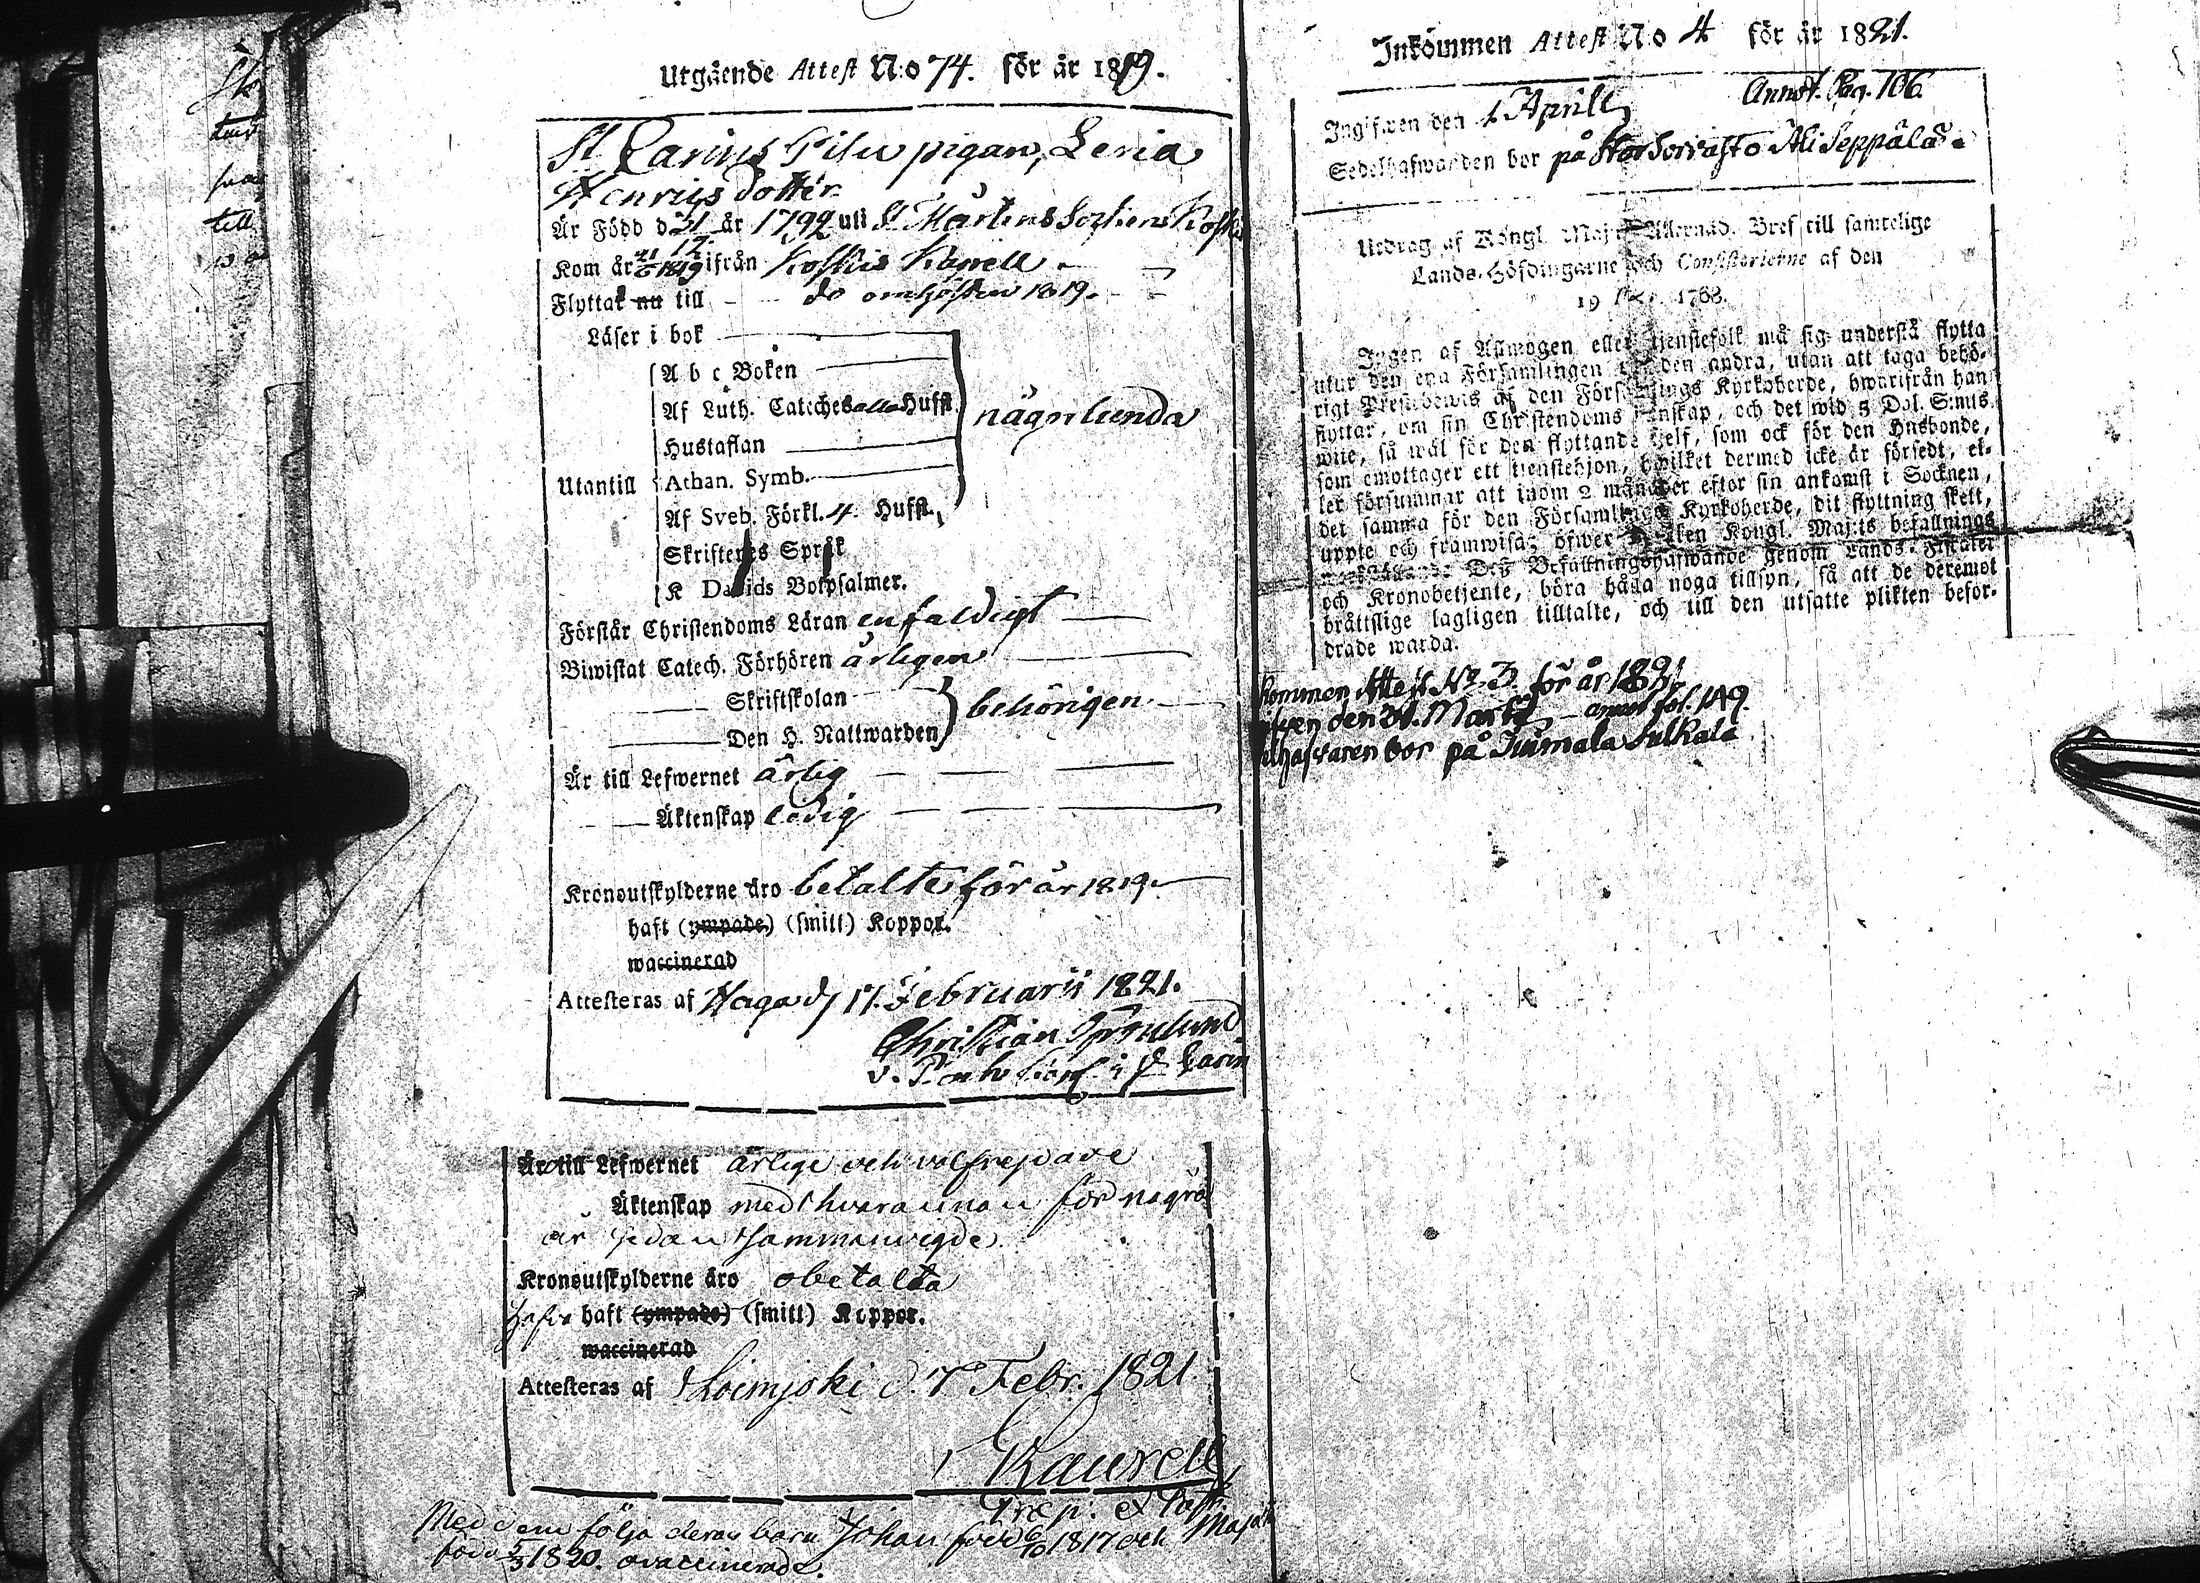 Utgående Attest N:o 74. för år 1819.
St Carins Pilu pigan, Leria
Henrics dotter
Är Född d 21/12 år 1799 uti St Mårtens Sochens Koskis
Kom år 21/6 1819 ifrån Koskis Kapell
Flyttat nu till do om hösten 1819.
Läser i bok
A b c Boken
Af Luth. Cateches alla Hufst.
någorlunda
Hustaflan
Utantill
Athan. Symb.
Af Sveb. Förkl. 4. Hufst.
Skriftenes Språk
K Davids Botpsalmer.
Förstår Christendoms Läran enfaldigt
Biwistat Catech. Förhören årligen
Skriftskolan
behörigen
Den H. Nattwarden
Är till Lefwernet ärlig
Äktenskap ledig
Kronoutskylderne äro betalte för år 1819.
haft (ympade) (smitt) Koppor.
waccinerad
Attesteras af Haga d 17. Februarii 1821.
Christian
v. Past. i St Carin
Är till Lefwernet ärlige och välfrejdade
Äktenskap med hvarannan för några
år sedan sammanvigde
Kronoutskylderne äro obetalta
Hafva haft (ympade) (smitt) Koppor.
waccinerad
Attesteras af Loimjoki d. 7 Febr. 1821.
Kaurell
Præp. et Past.
Med dem följa deras barn Johan född 6/10 1817 och Maja
född 5/3 1820. ovaccinerade.
Inkommen Attest N:o 4 för år 1821.
Annot. Pag. 106.
Ingifwen den 1 Aprill
Sedelhafwanden bor på Stor Sorrasto Ali Seppälä.
Utdrag af Köngl. Maj:ts Allernåd. Bref till samtelige
Lands-Höfdingarne och Consistorierne af den
19 1768.
Ingen af Allmogen eller tjenstefolk må sig understå flytta
utur den ena Församlingen till den andra, utan att taga behö-
rigt Prestebewis af den Församlings Kyrkoherde, hwarifrån han
flyttar, om sin Christendoms kunskap, och det wid 5 Dal. S:mts
wite, så wäl för den flyttande sjelf, som ock för den Husbonde,
som emottager ett tjenstehjon, hwilket dermed icke är försedt, el-
ler försummar att inom 2 månader efter sin ankomst i Socknen,
det samma för den Församlings Kyrkoherde, dit flyttning skett,
uppte och framwisa; öfwer hwilken Kongl. Maj:ts befallnings
Dess Befallningshafwande genom Lands-Fiscaler
och Kronobetjente, böra hafa noga tillsyn, så att de deremot
bråttslige lagligen tilltalte, och till den utsatte plikten befor-
drade warda.
kommen Attest No 3. för år 1821
ifven den 31. Martii annot fol. 149.
elhafvaren bor på Jumala Sulkala